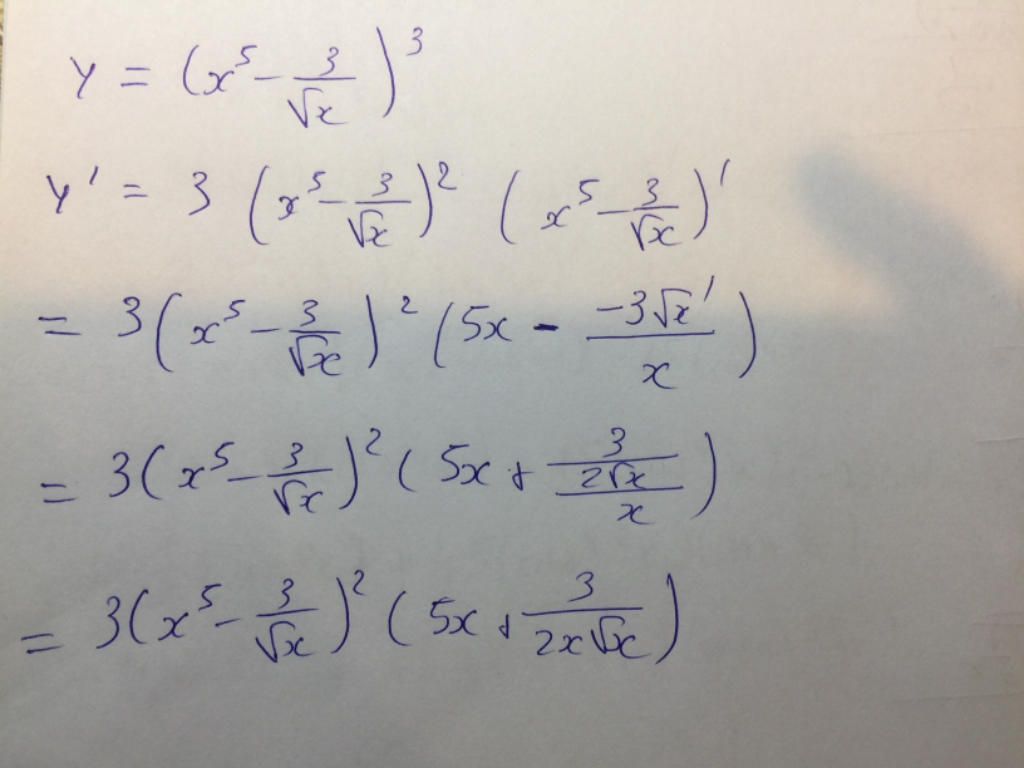 y = (x^5 - 3/√x)^3
y' = 3 (x^5 - 3/√x)^2 (x^5 - 3/√x)'
= 3(x^5 - 3/√x)^2 (5x - (-3√x')/x)
= 3(x^5 - 3/√x)^2 (5x + (3/(2√x))/x)
= 3(x^5 - 3/√x)^2 (5x + 3/(2x√x))